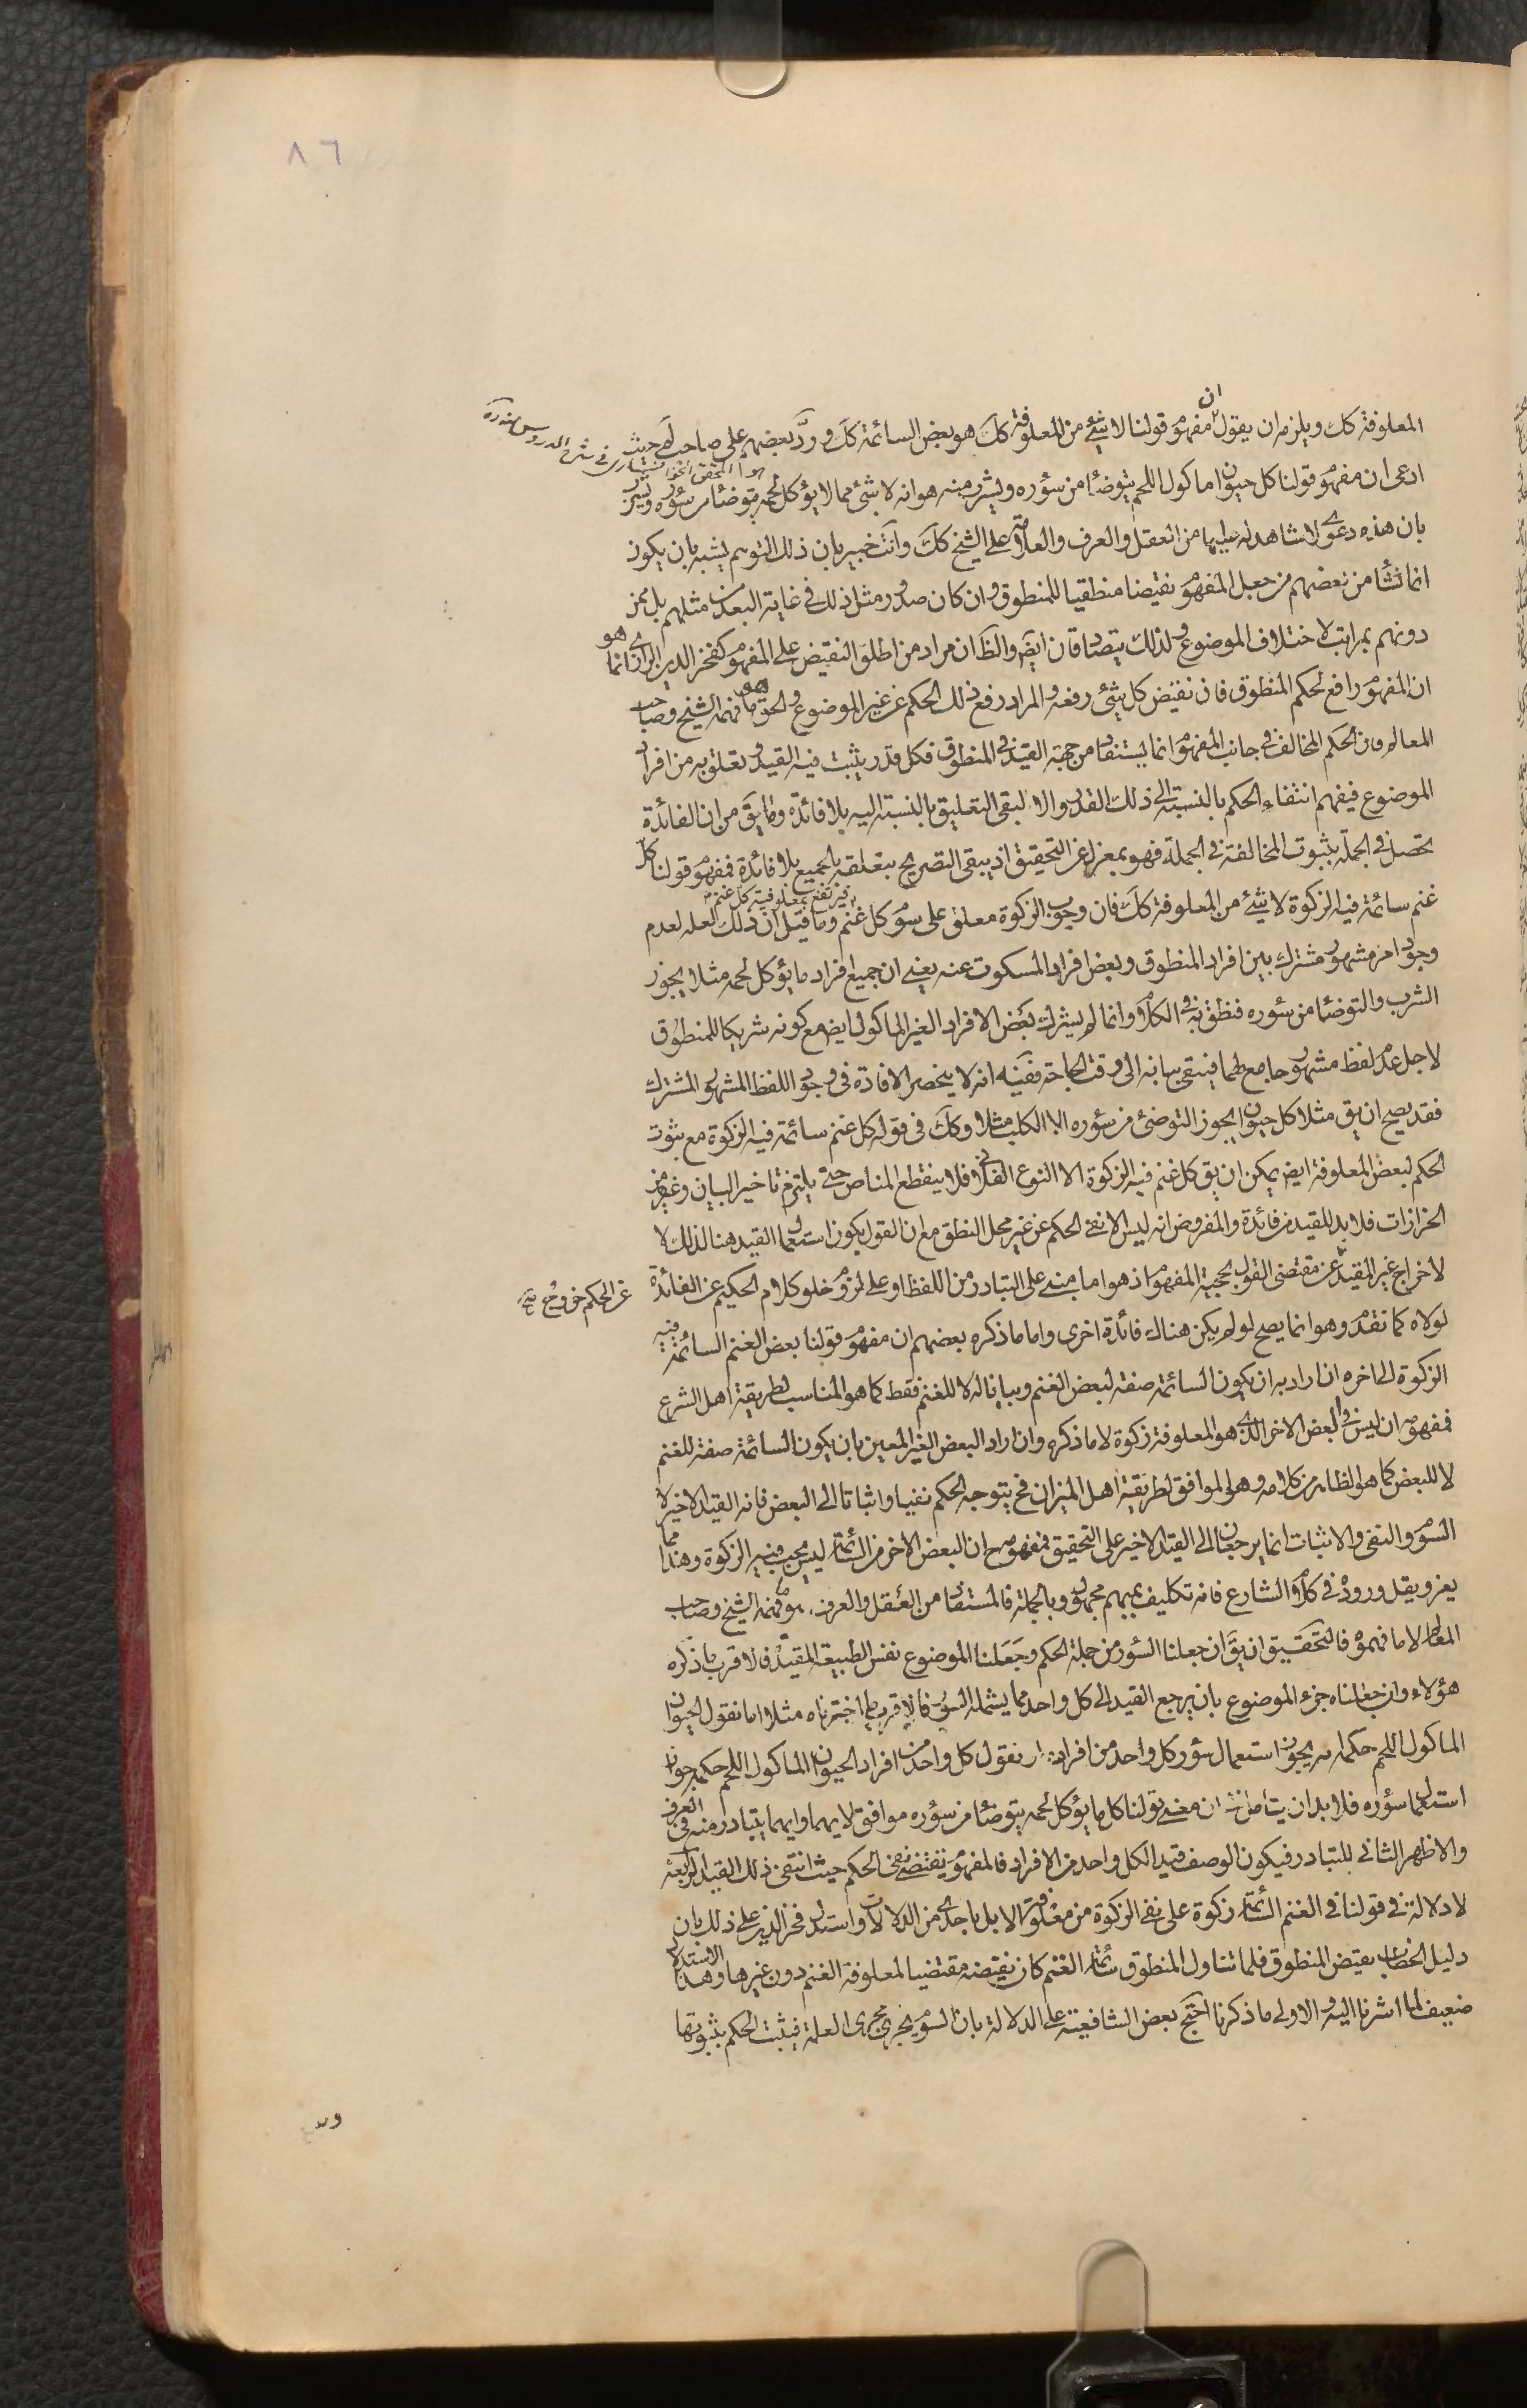 ٨٦
المعلوفة كك ويلزمه ان يقول ان مفهوم قولنا لا شئ من المعلوفة كك هو بعض السائمة كك وردّ بعضهم على صاحب لم حيث
هو المحقق الخوانساري في شرح الدروس منه ره
ادعى ان مفهوم قولنا كل حيوان ماكول اللحم يتوضأ من سؤره ويشرب منه هو انه لا شئ مما لا يؤكل لحمه يتوضأ من سؤره ويشرب
بان هذه دعوى لا شاهد له عليها من العقل والعرف والعلامة على الشيخ كك وانت خبير بان ذلك التوهم يشبه بان يكون
انما نشأ من بعضهم من جعل المفهوم نقيضا منطقيا للمنطوق وان كان صدور مثل ذلك في غاية البعد من مثلهم بل ممن
دونهم بمراتب لاختلاف الموضوع ولذلك يتصادقان ايض والظ ان مراد من اطلق النقيض على المفهوم كفخر الدين الرازي انما هو
ان المفهوم رافع لحكم المنطوق فان نقيض كل شئ رفعه والمراد رفع ذلك الحكم عن غير الموضوع والحق هو ما فهمه الشيخ وصاحب
المعالم فان الحكم المخالف في جانب المفهوم انما يستفاد من جهة القيد في المنطوق فكل قدر يثبت فيه القيد وتعلق به من افراد
الموضوع فيفهم انتفاء الحكم بالنسبة الى ذلك القدر والا لبقى التعليق بالنسبة اليه بلا فائدة وما يق من ان الفائدة
تحصل في الجملة بثبوت المخالفة في الجملة فهو بمعزل عن التحقيق اذ يبقى التصريح بتعلقه بالجميع بلا فائدة فمفهوم قولنا كل
غنم سائمة فيه الزكوة لا شئ من المعلوفة كك فان وجوب الزكوة معلق على سوم كل غنم فيرتفع بمعلوفية كل غنم وما قيل ان ذلك لعله لعدم
وجود امر مشهور مشترك بين افراد المنطوق وبعض افراد المسكوت عنه يعني ان جميع افراد ما يؤكل لحمه مثلا يجوز
الشرب والتوضأ من سؤره فنطق به في الكلام وانما لم يشرك بعض الافراد الغير الماكول ايض مع كونه شريكا للمنطوق
لاجل عدم لفظ مشهور جامع لهما فيبقى بيانه الى وقت الحاجة ففيه انه لا ينحصر الافادة في وجود اللفظ المشهور المشترك
فقد يصح ان يق مثلا كل حيوان يجوز التوضئ من سؤره الا الكلب مثلا وكك في قوله كل غنم سائمة فيه الزكوة مع ثبوت
الحكم لبعض المعلوفة ايض يمكن ان يق كل غنم فيه الزكوة الا النوع الفلاني فلا ينقطع المناص حتى يلتزم تاخير البيان وغيره من
الحزازات فلا بد للقيد من فائدة والمفروض انه ليس الا نفى الحكم عن غير محل النطق مع ان القول بكون استعمال القيد هنا لذلك لا
لاخراج غير المقيد عن الحكم خروج عن مقتضى القول بحجية المفهوم اذ هو اما مبنى على التبادر من اللفظ او على لزوم خلو كلام الحكيم عن الفائدة
لولاه كما تقدم وهو انما يصح لو لم يكن هناك فائدة اخرى واما ما ذكره بعضهم ان مفهوم قولنا بعض الغنم السائمة فيه
الزكوة الى اخره ان اراد به ان يكون السائمة صفة لبعض الغنم وبيانا له لا للغنم فقط كما هو المناسب لطريقة اهل الشرع
فمفهومه ان ليس في البعض الاخر الذي هو المعلوفة زكوة لا ما ذكره وان اراد البعض الغير المعين بان يكون السائمة صفة للغنم
لا للبعض كما هو الظاهر من كلامه وهو الموافق لطريقة اهل الميزان فح يتوجه الحكم نفيا واثباتا الى البعض فانه القيد الاخير لا
السوم والنفى والاثبات انما يرجعان الى القيد الاخير على التحقيق فمفهومه ح ان البعض الاخر من السائمة ليس يجب فيه الزكوة وهذا مما
يعز ويقل وروده في كلام الشارع فانه تكليف بمبهم مجهول وبالجملة فالمستفاد من العقل والعرف هو ما فهمه الشيخ وصاحب
المعالم لا ما فهموه فالتحقيق ان يق ان جعلنا السور من جملة الحكم وجعلنا الموضوع نفس الطبيعة المقيدة فالاقرب ما ذكره
هؤلاء وان جعلناه جزء الموضوع بان يرجع القيد الى كل واحد مما يشمله السور فالاقرب ما اخترناه مثلا اما نقول الحيوان
الماكول اللحم حكمه انه يجوز استعمال سؤر كل واحد من افراده او نقول كل واحد من افراد الحيوان الماكول اللحم حكمه جواز
استعمال سؤره فلا بد ان يتامل في ان معنى قولنا كل ما يؤكل لحمه يتوضأ من سؤره موافق لايهما وايهما يتبادر منه في العرف
والاظهر الثاني للتبادر فيكون الوصف قيدا لكل واحد من الافراد فالمفهوم يقتضى نفى الحكم حيث انتفى ذلك القيد الرابعة
لا دلالة في قولنا في الغنم السائمة زكوة على نفى الزكوة من معلوفة الابل باحدى من الدلالات واستدل فخر الدين على ذلك بان
دليل الخطاب نقيض المنطوق فلما تناول المنطوق سائمة الغنم كان نقيضه مقتضيا لمعلوفة الغنم دون غيرها وهذا الاستدلال
ضعيف لما اشرنا اليه والاولى ما ذكرنا احتج بعض الشافعية على الدلالة بان السوم يجرى مجرى العلة فيثبت الحكم بثبوتها